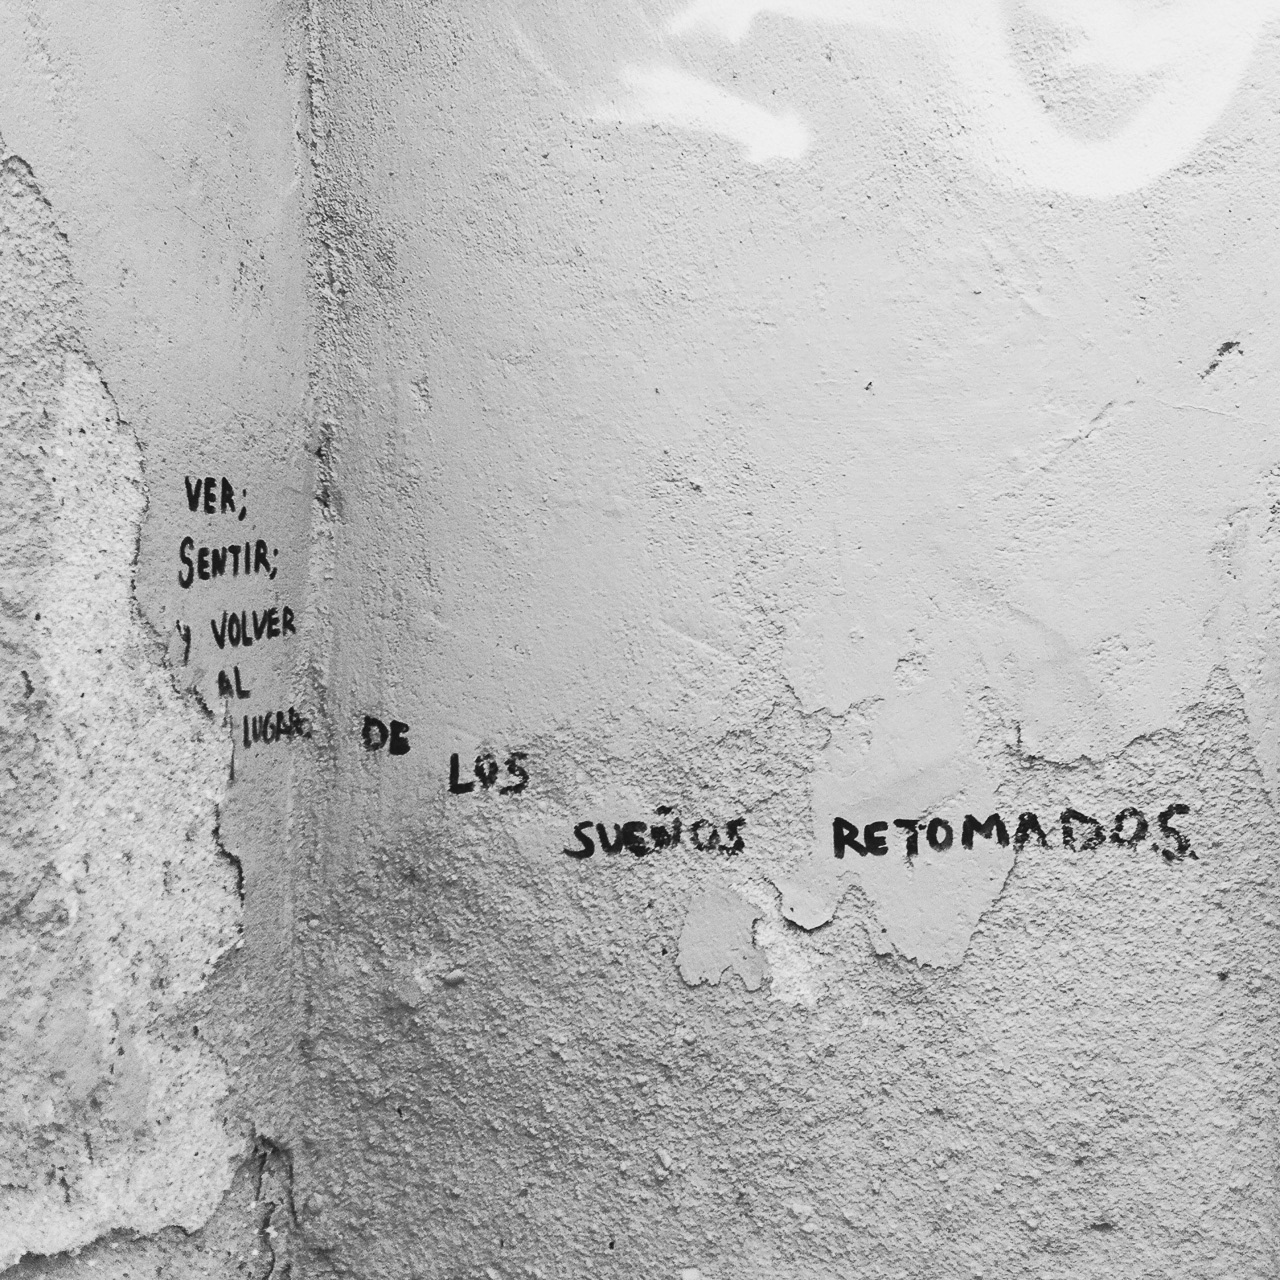 VER;
SENTIR;
y VOLVER
AL
LUGAR
DE
LOS
SUEÑOS RETOMADOS.